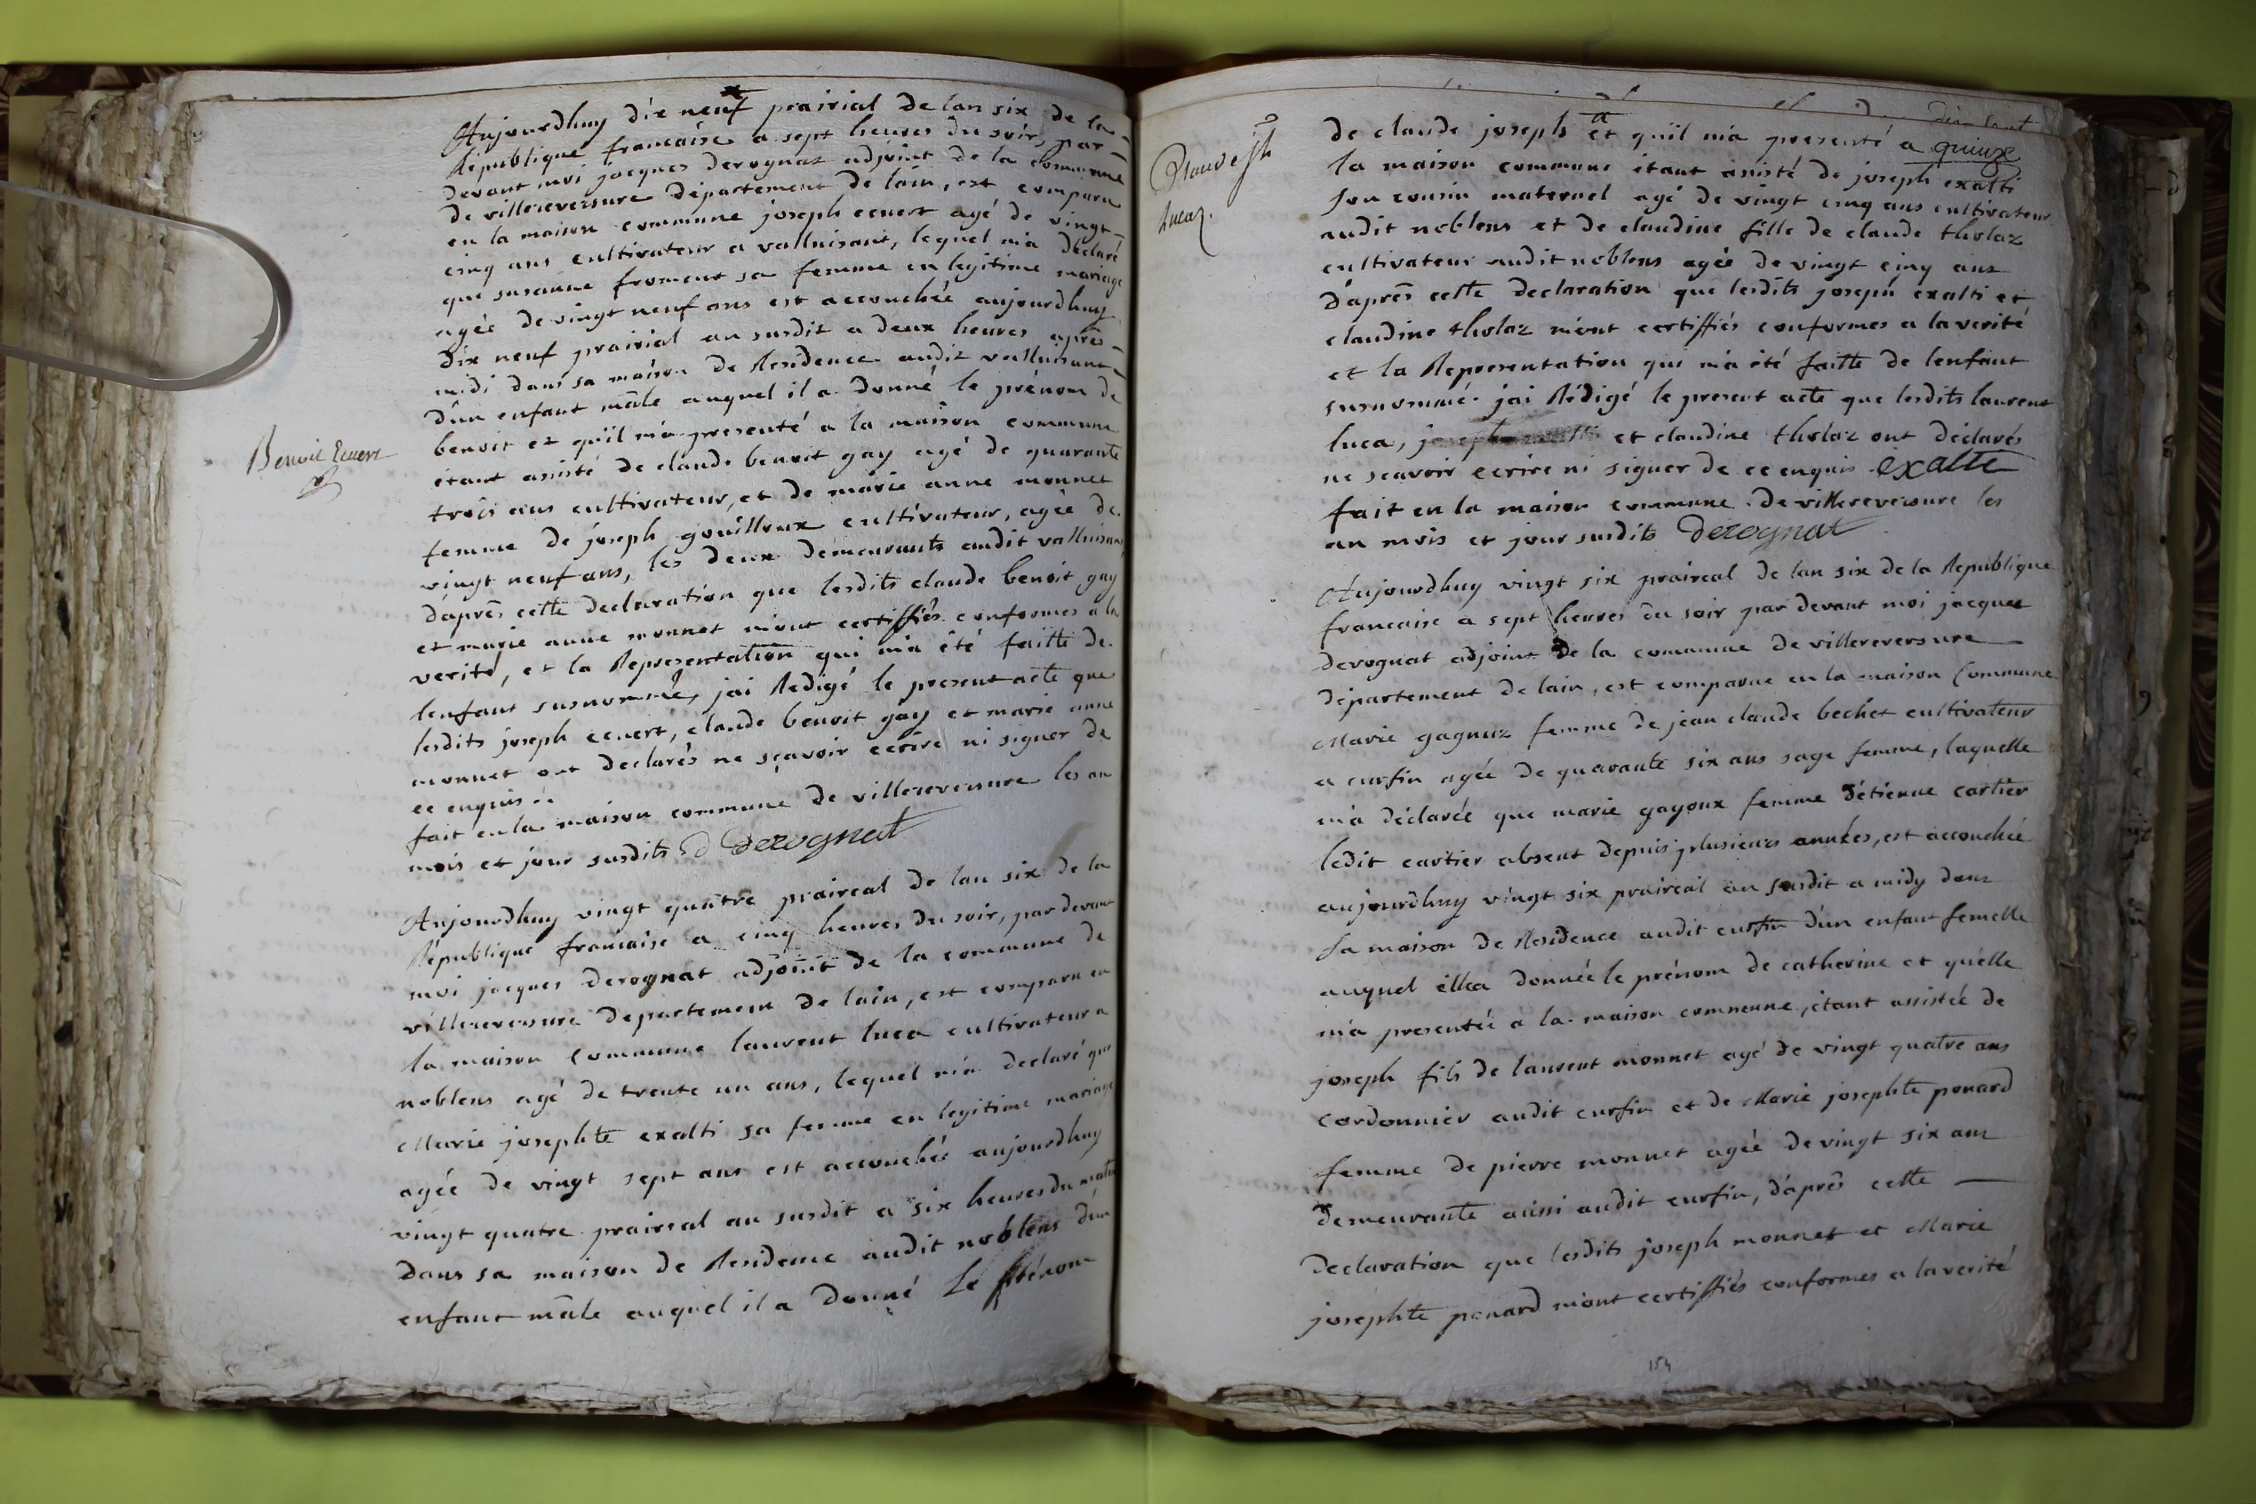 Aujourdhuy dix neuf prairial de lan six de la
Republique francaise a sept heures du soir, par
devant moi jacques derognat adjoint de la commune
de villereversure departement de lain, est comparu
en la maison commune joseph ecuert agé de vingt
cinq ans cultivateur a valluisant, lequel m'a déclaré
que susanne froment sa femme en legitime mariage
agée de vingt neuf ans est accouchée aujourdhuy
dix neuf prairial an susdit a deux heures aprés
midi dans sa maison de Residence audit valluisant
d'un enfant mâle auquel il a donné le prénom de
benoit et qu'il m'a presenté a la maison commune
étant assisté de claude benoit gay agé de quarante
trois ans cultivateur, et de marie anne monnet
femme de joseph gouilloux cultivateur, agée de
vingt neuf ans, les deux demeurants audit valluisant
d'aprés cette declaration que lesdits claude benoit gay
et marie anne monnet m'ont certiffiés conformes a la
verité, et la Representation qui m'a été faitte de
lenfant susnommé, jai Redigé le present acte que
lesdits joseph ecuert, claude benoit gay et marie anne
monnet ont declarés ne sçavoir ecrire ni signer de
ce enquis
fait en la maison commune de villereversure les an
mois et jour susdits derognat
Benoit Ecuert
Aujourdhuy vingt quatre praireal de lan six de la
République francaise a cinq heures du soir, par devant
moi jacques derognat adjoint de la commune de
villereversure departement de lain, est comparu en
la maison commune laurent luca cultivateur a
noblens agé de trente un ans, lequel m'a declaré que
Marie josephte exalti sa femme en legitime mariage
agée de vingt sept ans est accouchée aujourdhuy
vingt quatre praireal an susdit a six heures du matin
dans sa maison de Residence audit noblens d'un
enfant mâle auquel il a donné le prénom
Claude jh
lucaz.
de claude joseph et qu'il m'a presenté a quinze
la maison commune étant assisté de joseph exalti
son cousin maternel agé de vingt cinq ans cultivateur
audit noblens et de claudine fille de claude tholaz
cultivateur audit noblens agée de vingt cinq ans
d'aprés cette declaration que lesdits joseph exalti et
claudine tholaz m'ont certiffiés conformes a la verité
et la Representation qui m'a été faitte de lenfant
susnommé jai Rédigé le present acte que lesdits laurent
luca, et claudine tholaz ont déclarés
ne scavoir ecrire ni signer de ce enquis exalte
fait en la maison commune de villereversure les
an mois et jour susdits derognat
Aujourdhuy vingt six praireal de lan six de la Republique
francaise a sept heures du soir par devant moi jacques
derognat adjoint de la commune de villereversure
département de lain, est comparue en la maison Commune
Marie gagnuz femme de jean claude bechet cultivateur
a curfin agée de quarante six ans sage femme, laquelle
m'a déclarée que marie gayoux femme d'étienne cartier
ledit cartier absent depuis plusieurs années, est accouchée
aujourdhuy vingt six praireal an susdit a midy dans
sa maison de Residence audit curfin d'un enfant femelle
auquel ellea donnée le prénom de catherine et qu'elle
m'a presentée a la maison commune, étant assistée de
joseph fils de laurent monnet agé de vingt quatre ans
cordonnier audit curfin et de Marie josephte ponard
femme de pierre monnet agée de vingt six ans
demeurante aussi audit curfin, d'aprés cette
declaration que lesdits joseph monnet et Marie
josephte ponard m'ont certiffiés conformes a la verité
154